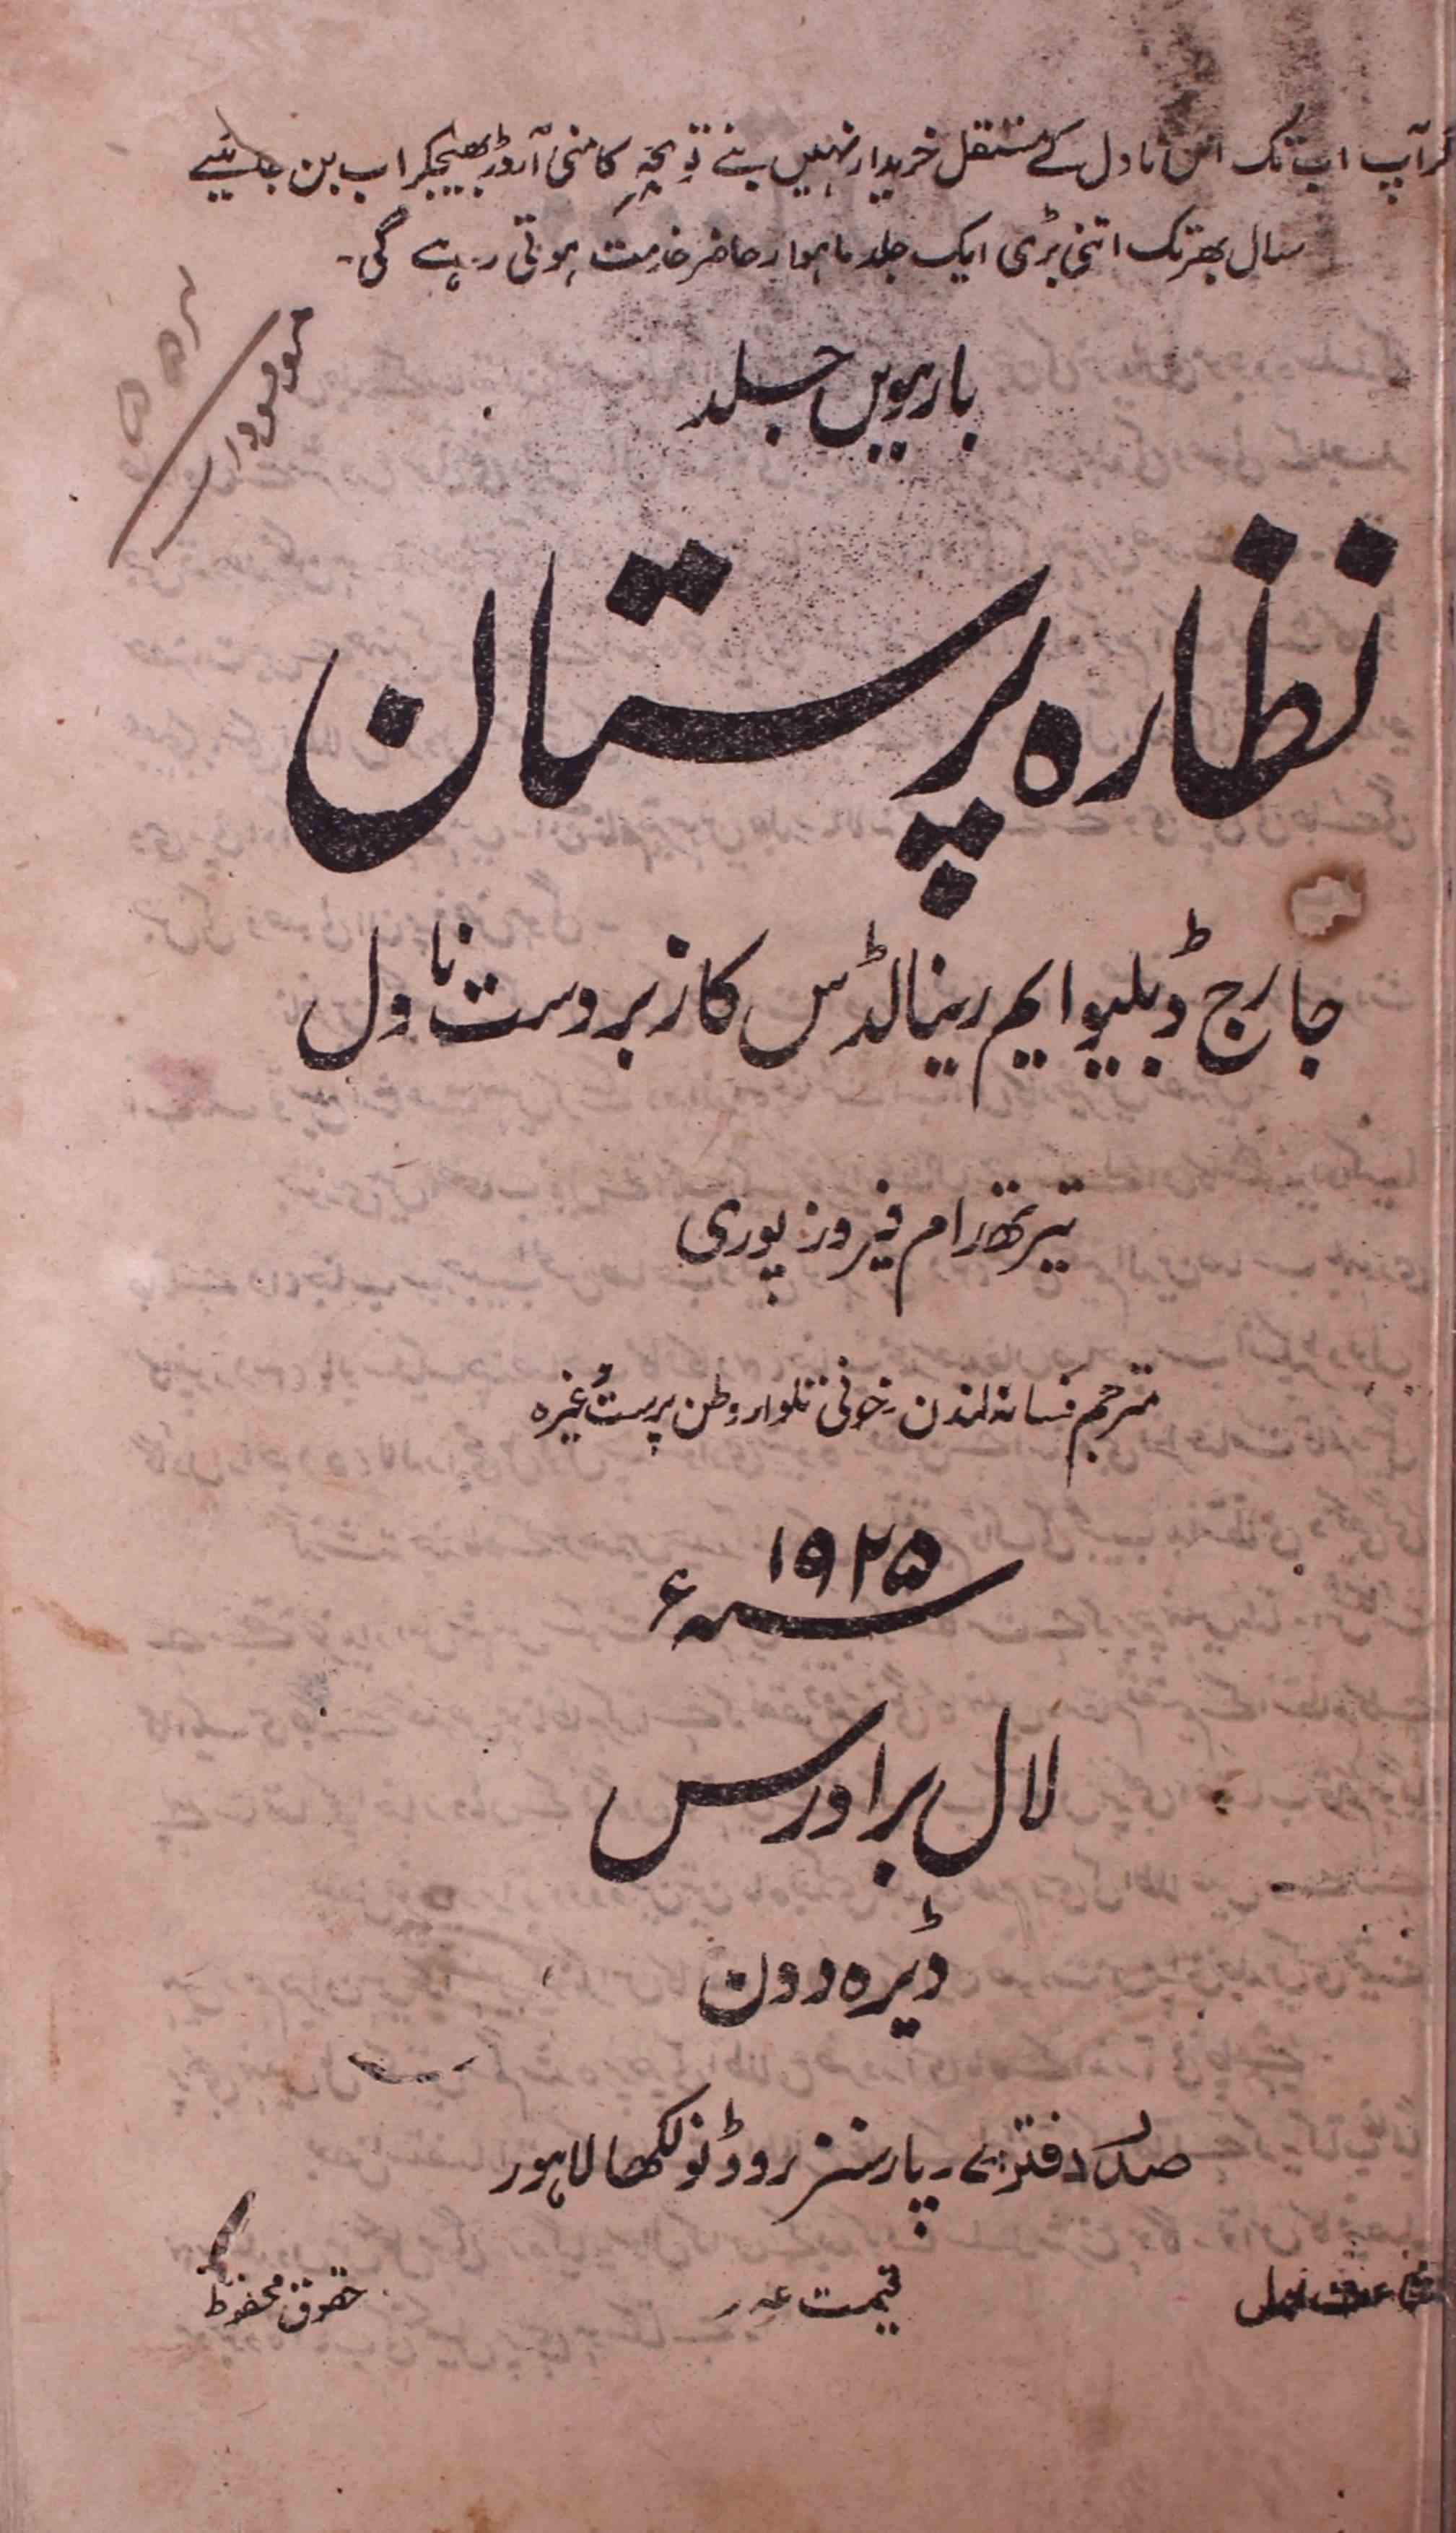 آپ اب تک اس ناول کے مستقل خریدار نہیں بنے تو کا منی آرڈر بھیجکر اب بن جائیے
سال بھر تک اتنی بڑی ایک جلد ماہوار حاضر خدمت ہوتی رہے گی۔
بارہویں جلد
نظارہ پرستان
جارج ڈبلیو ایم رینالڈس کا زبردست ناول
تیرتھ رام فیروز پوری
مترجم فسانہ لندن۔ خونی تلوار وطن پرست وغیرہ
۱۹۲۵ سنہ ء
لال برادرس
ڈیرہ دون
صدر دفتر ۷۔ پارسنز روڈ نولکھا لاہور
قیمت عہ ر
حقوق محفوظ